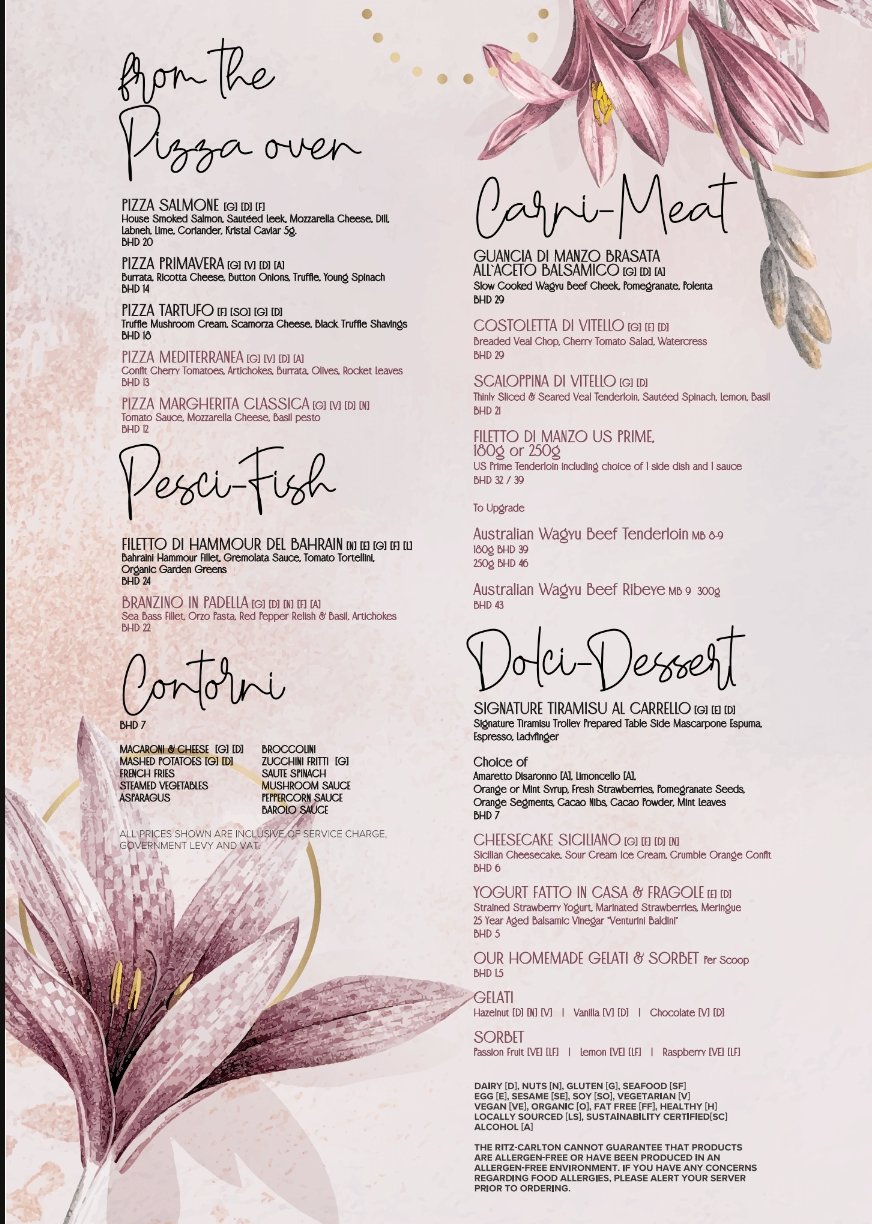 from the
Pizza oven
PIZZA SALMONE [G] [D] [F]
House Smoked Salmon, Sautéed Leek, Mozzarella Cheese, Dill,
Labneh, Lime, Coriander, Kristal Caviar 5g.
BHD 20
PIZZA PRIMAVERA [G] [V] [D] [A]
Burrata, Ricotta Cheese, Button Onions, Truffle, Young Spinach
BHD 14
PIZZA TARTUFO [F] [SO] [G] [D]
Truffle Mushroom Cream, Scamorza Cheese, Black Truffle Shavings
BHD 18
PIZZA MEDITERRANEA [G] [V] [D] [A]
Confit Cherry Tomatoes, Artichokes, Burrata, Olives, Rocket Leaves
BHD 13
PIZZA MARGHERITA CLASSICA [G] [V] [D] [N]
Tomato Sauce, Mozzarella Cheese, Basil pesto
BHD 12
Pesci-Fish
FILETTO DI HAMMOUR DEL BAHRAIN [N] [E] [G] [F] [L]
Bahraini Hammour Fillet, Gremolata Sauce, Tomato Tortellini,
Organic Garden Greens
BHD 24
BRANZINO IN PADELLA [G] [D] [N] [F] [A]
Sea Bass Fillet, Orzo Pasta, Red Pepper Relish & Basil, Artichokes
BHD 22
Contorni
BHD 7
MACARONI & CHEESE [G] [D]
MASHED POTATOES [G] [D]
FRENCH FRIES
STEAMED VEGETABLES
ASPARAGUS
BROCCOLINI
ZUCCHINI FRITTI [G]
SAUTE SPINACH
MUSHROOM SAUCE
PEPPERCORN SAUCE
BAROLO SAUCE
ALL PRICES SHOWN ARE INCLUSIVE OF SERVICE CHARGE,
GOVERNMENT LEVY AND VAT.
Carni-Meat
GUANCIA DI MANZO BRASATA
ALL'ACETO BALSAMICO [G] [D] [A]
Slow Cooked Wagyu Beef Cheek, Pomegranate, Polenta
BHD 29
COSTOLETTA DI VITELLO [G] [E] [D]
Breaded Veal Chop, Cherry Tomato Salad, Watercress
BHD 29
SCALOPPINA DI VITELLO [G] [D]
Thinly Sliced & Seared Veal Tenderloin, Sautéed Spinach, Lemon, Basil
BHD 21
FILETTO DI MANZO US PRIME,
180g or 250g
US Prime Tenderloin including choice of 1 side dish and 1 sauce
BHD 32 / 39
To Upgrade
Australian Wagyu Beef Tenderloin MB 8-9
180g BHD 39
250g BHD 46
Australian Wagyu Beef Ribeye MB 9 300g
BHD 43
Dolci-Dessert
SIGNATURE TIRAMISU AL CARRELLO [G] [E] [D]
Signature Tiramisu Trolley Prepared Table Side Mascarpone Espuma,
Espresso, Ladyfinger
Choice of
Amaretto Disaronno [A], Limoncello [A],
Orange or Mint Syrup, Fresh Strawberries, Pomegranate Seeds,
Orange Segments, Cacao Nibs, Cacao Powder, Mint Leaves
BHD 7
CHEESECAKE SICILIANO [G] [E] [D] [N]
Sicilian Cheesecake, Sour Cream Ice Cream, Crumble Orange Confit
BHD 6
YOGURT FATTO IN CASA & FRAGOLE [E] [D]
Strained Strawberry Yogurt, Marinated Strawberries, Meringue
25 Year Aged Balsamic Vinegar "Venturini Baldini"
BHD 5
OUR HOMEMADE GELATI & SORBET Per Scoop
BHD 1.5
GELATI
Hazelnut [D] [N] [V] | Vanilla [V] [D] | Chocolate [V] [D]
SORBET
Passion Fruit [VE] [LF] | Lemon [VE] [LF] | Raspberry [VE] [LF]
DAIRY [D], NUTS [N], GLUTEN [G], SEAFOOD [SF]
EGG [E], SESAME [SE], SOY [SO], VEGETARIAN [V]
VEGAN [VE], ORGANIC [O], FAT FREE [FF], HEALTHY [H]
LOCALLY SOURCED [LS], SUSTAINABILITY CERTIFIED[SC]
ALCOHOL [A]
THE RITZ-CARLTON CANNOT GUARANTEE THAT PRODUCTS
ARE ALLERGEN-FREE OR HAVE BEEN PRODUCED IN AN
ALLERGEN-FREE ENVIRONMENT. IF YOU HAVE ANY CONCERNS
REGARDING FOOD ALLERGIES, PLEASE ALERT YOUR SERVER
PRIOR TO ORDERING.